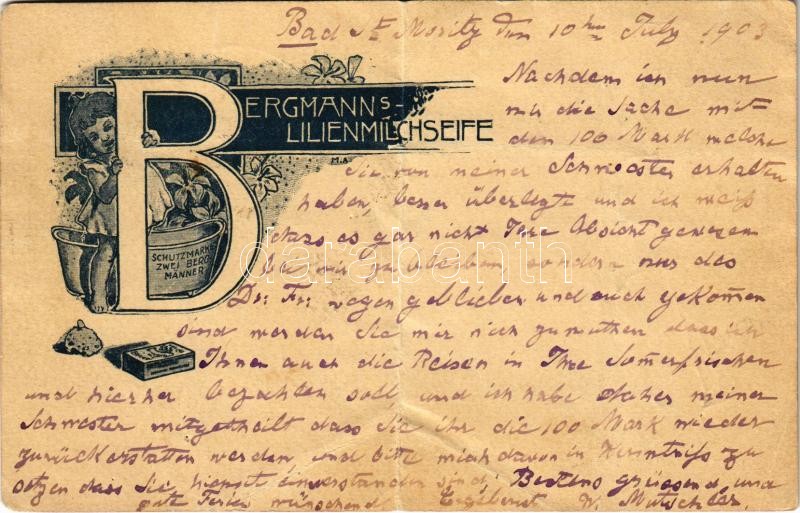 Bad St Moritz den 10ten July 1903
BERGMANNS-
LILIENMILCHSEIFE
M.A.
SCHUTZMARKE
ZWEI BERG
MÄNNER
Nachdem ich nun
mir die Sache mit
den 100 Mark welche
Sie von meiner Schwester erhalten
haben, besser überlegte und ich weiß
dass es gar nicht Ihre Absicht gewesen
bei mir zu bleiben sondern nur des
Dr: Fr: wegen geblieben und auch gekommen
sind werden Sie mir nich zumuthen dass ich
Ihnen auch die Reisen in Ihre Somerfrischen
und hierher bezahlen soll, und ich habe daher meiner
Schwester mitgetheilt dass Sie ihr die 100 Mark wieder
zurückerstatten werden und bitte mich davon in Kenntniss zu
setzen dass Sie hiemit einverstanden sind; Bestens grüssend und
gute Ferien wünschend Ergebenst
darabanth